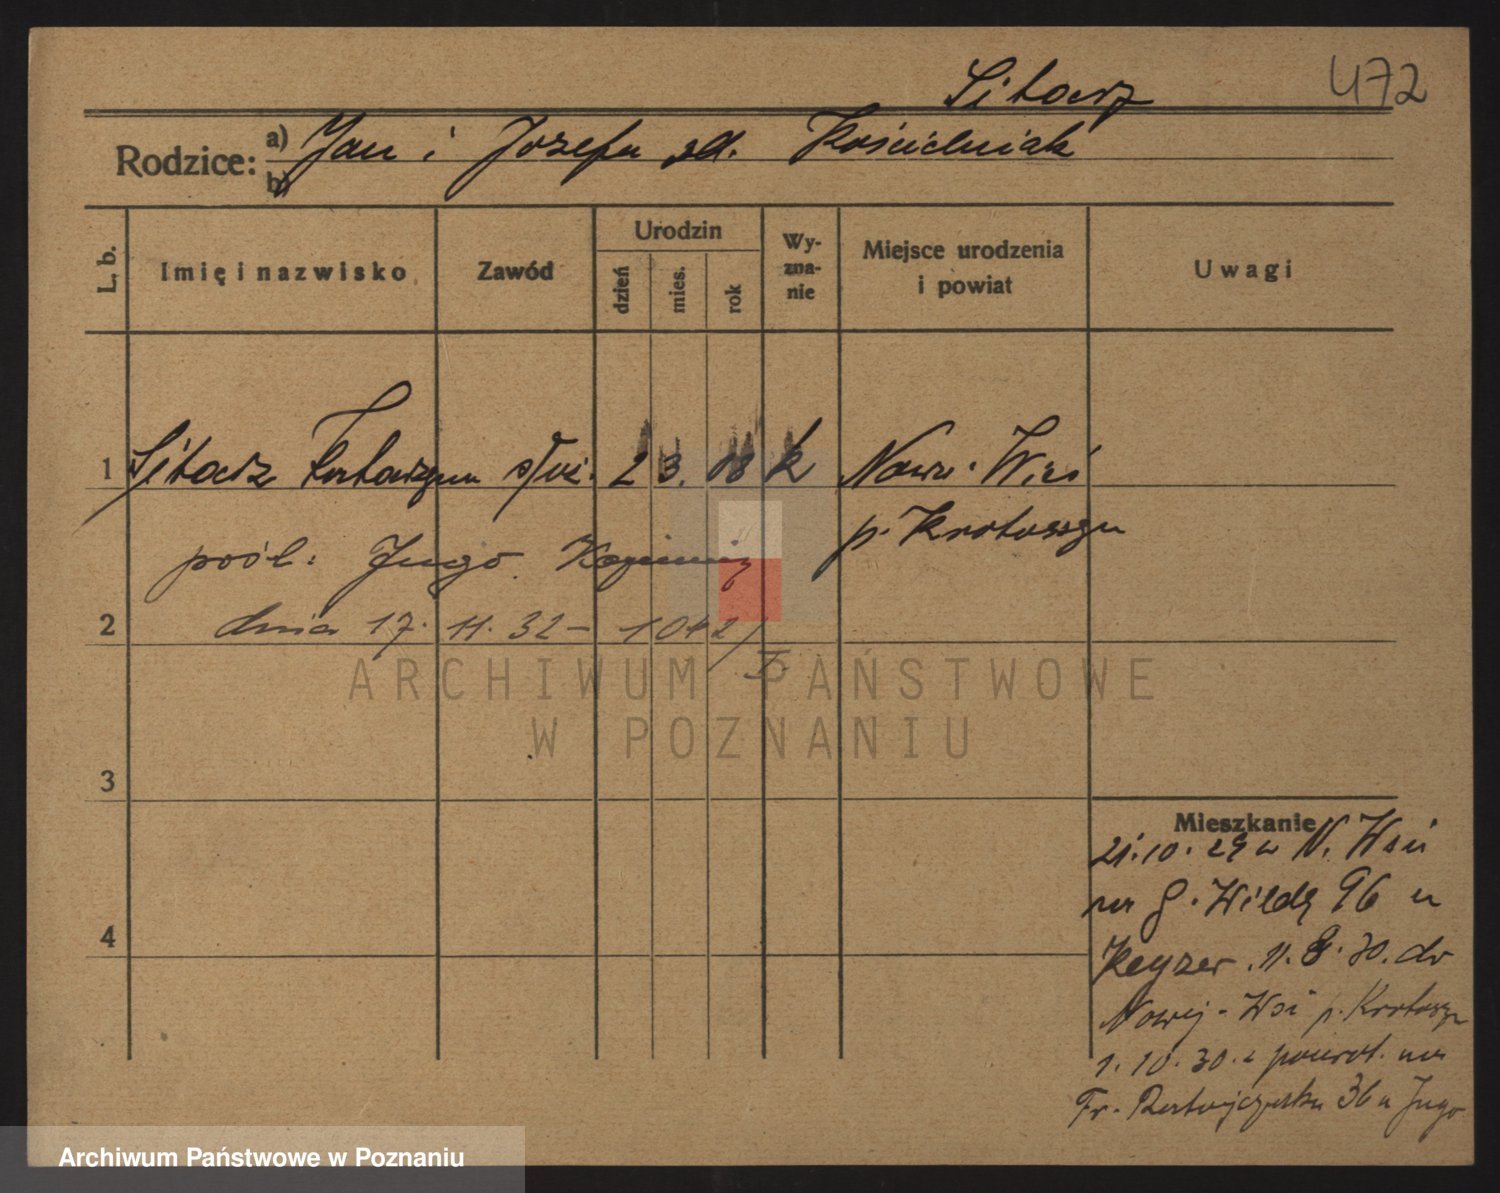 Sitarz
472
Rodzice: a) Jan i Józefa zd. Kościelniak
b)
L. b.
Imię i nazwisko
Zawód
Urodzin
dzień
mies.
rok
Wy-
zna-
nie
Miejsce urodzenia
i powiat
Uwagi
1 Sitarz Katarzyna służ. 2 3. 08 k Nowa-Wieś
p. Krotoszyn
pośl: Jugo Kazimierz
2 dnia 17. 11. 32 – 1042/
ARCHIWUM PAŃSTWOWE
W POZNANIU
3
4
Mieszkanie
21.10.29 w N. Wsi
na G. Wildę 96 u
Keyzer. 11. 8. 30. do
Nowej-Wsi p. Krotoszyn
1. 10. 30. z powrot. na
Fr. Ratajczaka 36 u Jugo
Archiwum Państwowe w Poznaniu